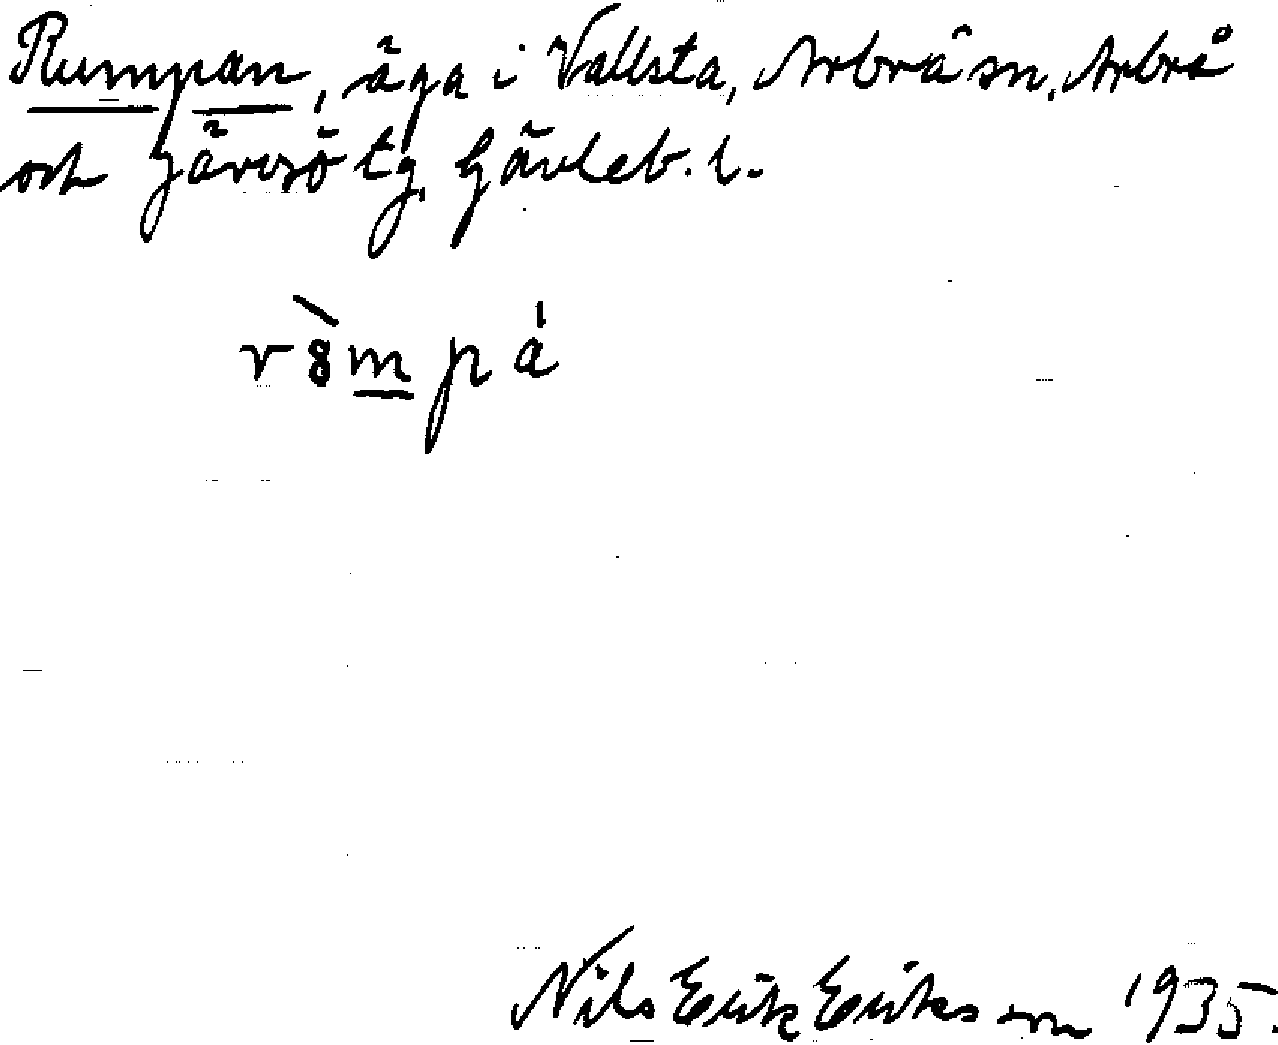 Rumpan, äga i Vallsta, Arbrå sn, Arbrå
och Järvsö tg, Gävleb. l.
Nils Erik Eriksson 1935.